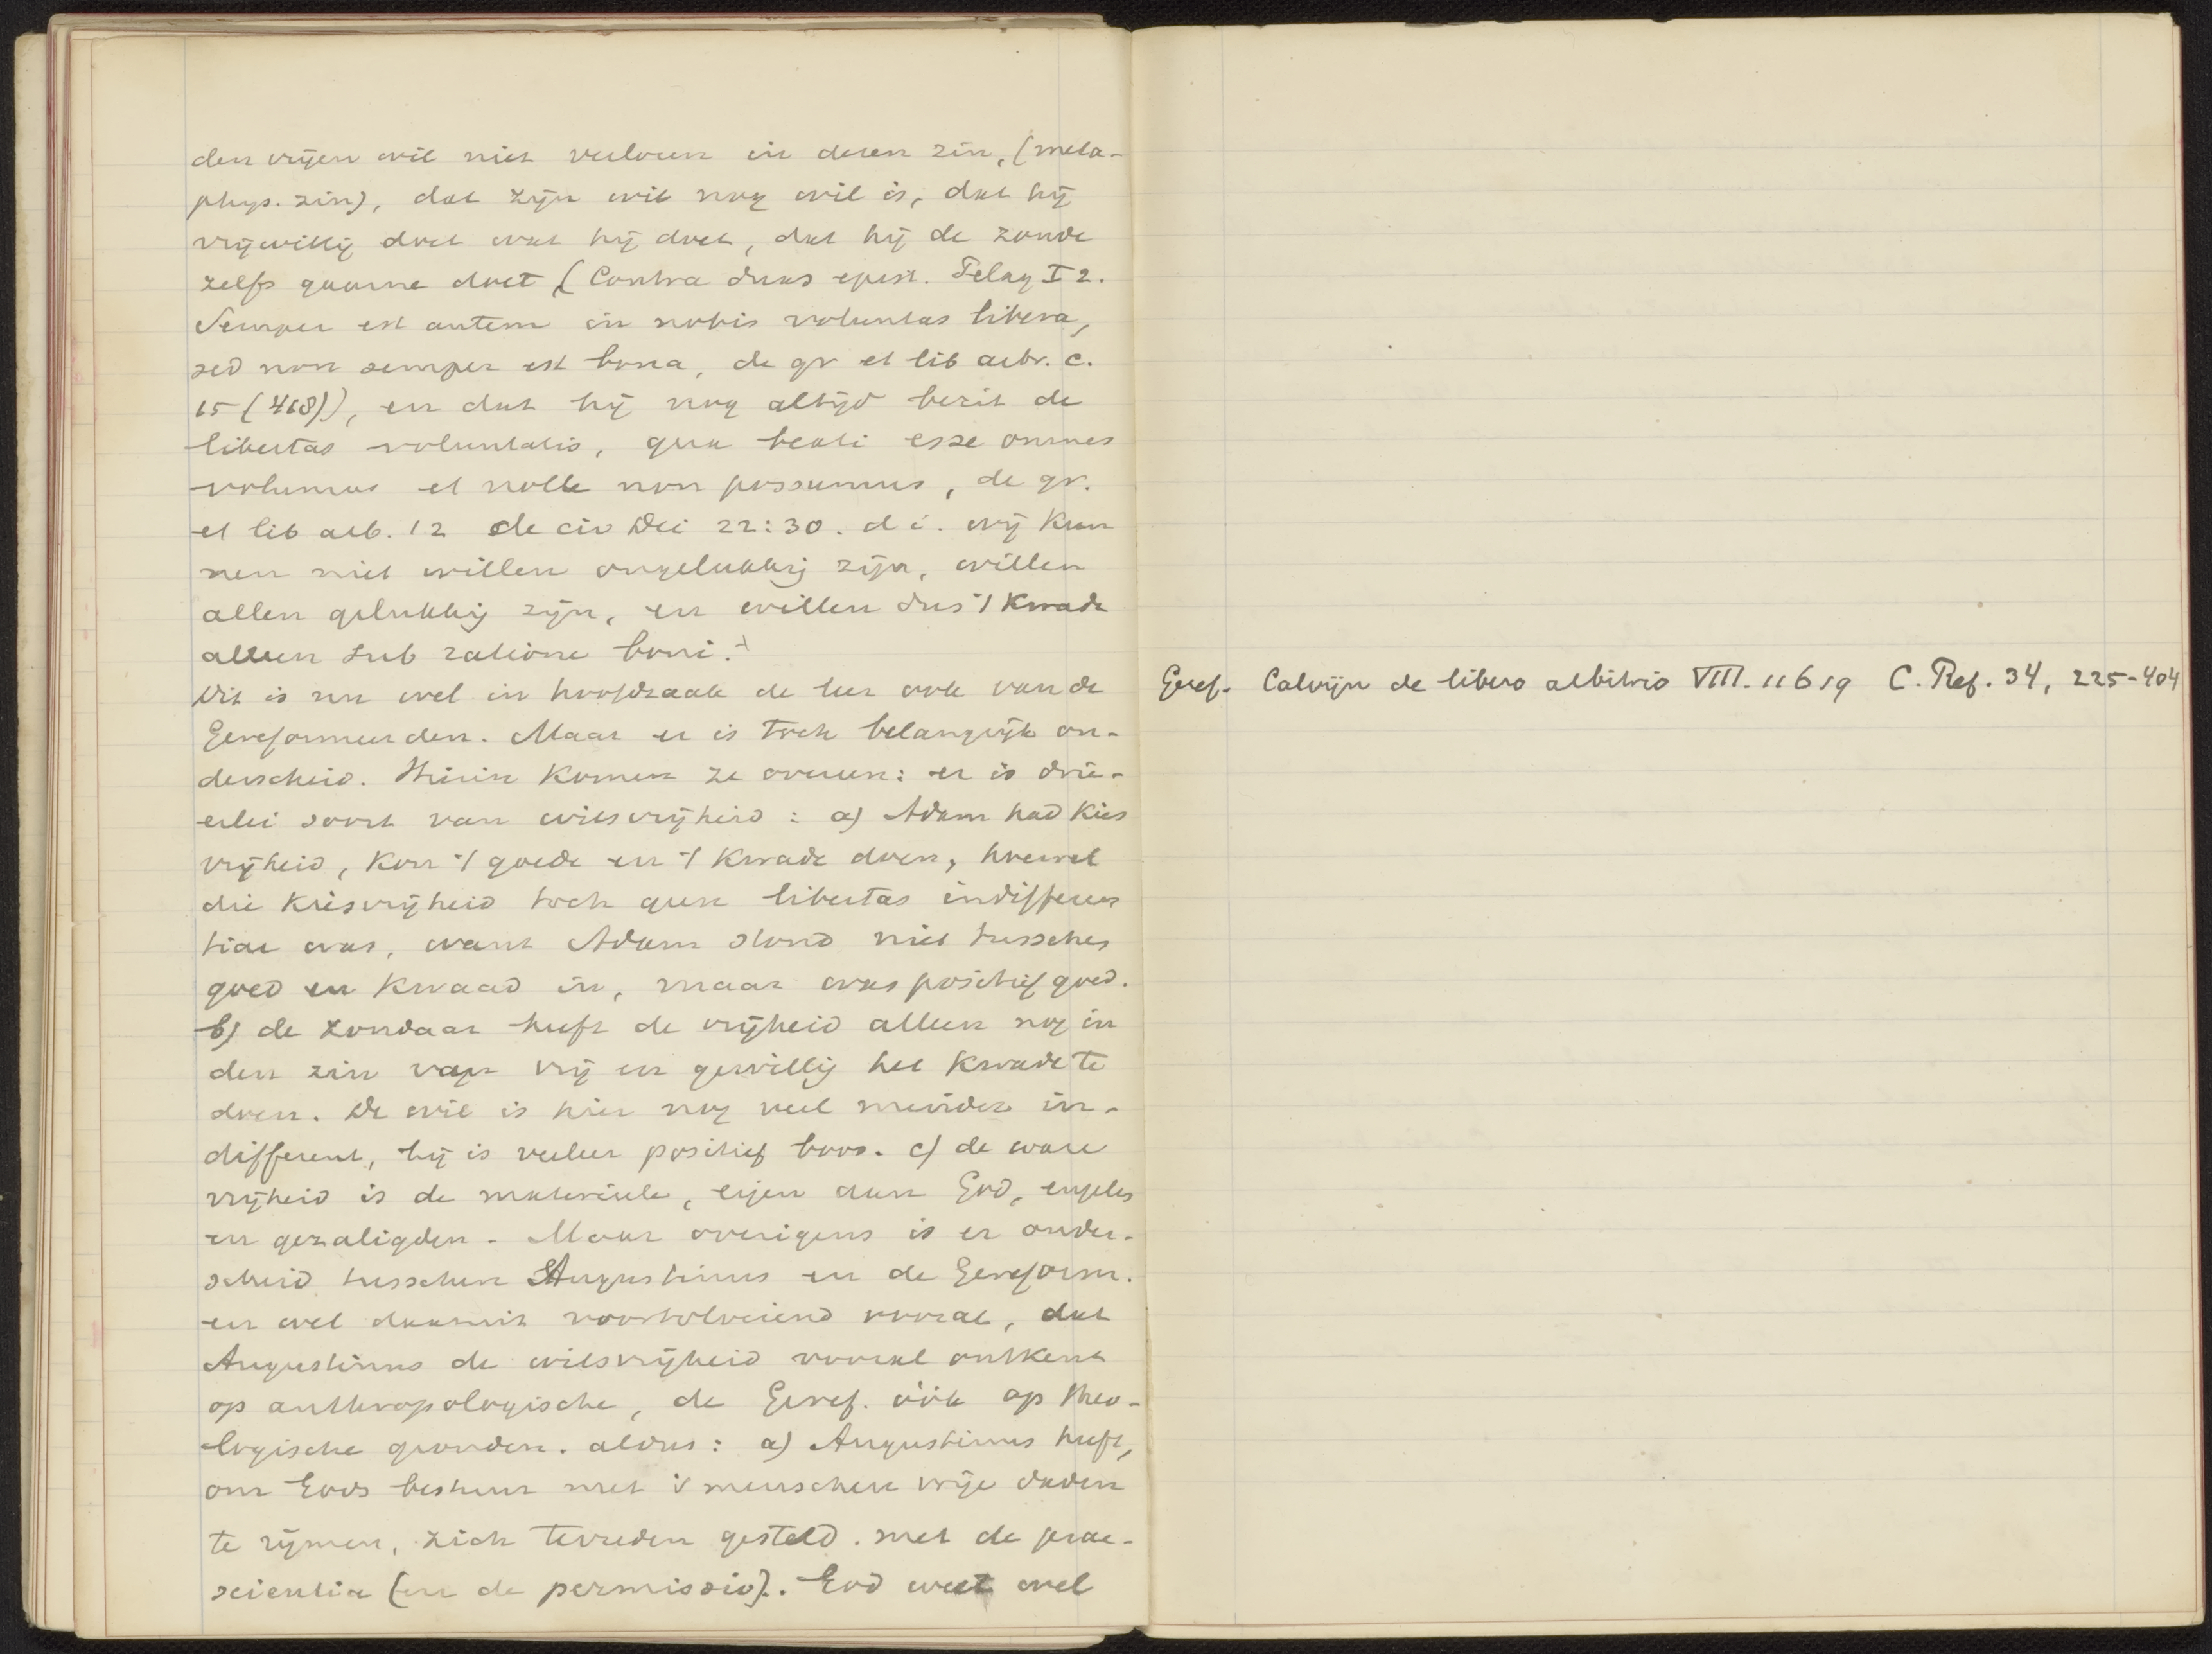 den vrijen wil niet verloren in dezen zin, (meta-
phys. zin), dat zijn wil nog wil is, dat hij
vrijwillig doet wat hij doet, dat hij de zonde
zelfs gaarne doet (Contra duas epist. Pelag I 2.
Semper est autem in nobis voluntas libera,
sed non semper est bona, de gr et lib arbr. c.
15 (418)), en dat hij nog altijd bezit de
libertas voluntatis, qua beati esse omnes
volumus et nolle non possumus, de gr.
et lib arb. 12 de civ Dei 22:30. d i. wij kun
nen niet willen ongelukkig zijn, willen
allen gelukkig zijn, en willen dus 't kwade
alleen sub ratione boni.+
Dit is nu wel in hoofdzaak de leer ook van de
Gereformeerden. Maar er is toch belangrijk on-
derscheid. Hierin komen ze overeen: er is drie-
erlei soort van wilsvrijheid: a) Adam had kies
vrijheid, kon 't goede en 't kwade doen, hoewel
die kiesvrijheid toch geen libertas indifferen
tiae was, want Adam stond niet tusschen
goed en kwaad in, maar was positief goed.
b) de zondaar heeft de vrijheid alleen nog in
den zin van vrij en gewillig het kwade te
doen. De wil is hier nog veel minder in-
different, hij is veeleer positief boos. c) de ware
vrijheid is de materieele, eigen aan God, engelen
en gezaligden. Maar overigens is er onder-
scheid tusschen Augustinus en de Gereform.
en wel daaruit voortvloeiend vooral, dat
Augustinus de wilsvrijheid vooral ontkent
op anthropologische, de Geref. óók op theo-
logische gronden. aldus: a) Augustinus heeft,
om Gods bestuur met 's menschen vrije daden
te rijmen, zich tevreden gesteld met de prae-
scientia (en de permissio). God weet wel
Geref. Calvijn de libero arbitrio VIII. 11619 C. Ref. 34, 225-404